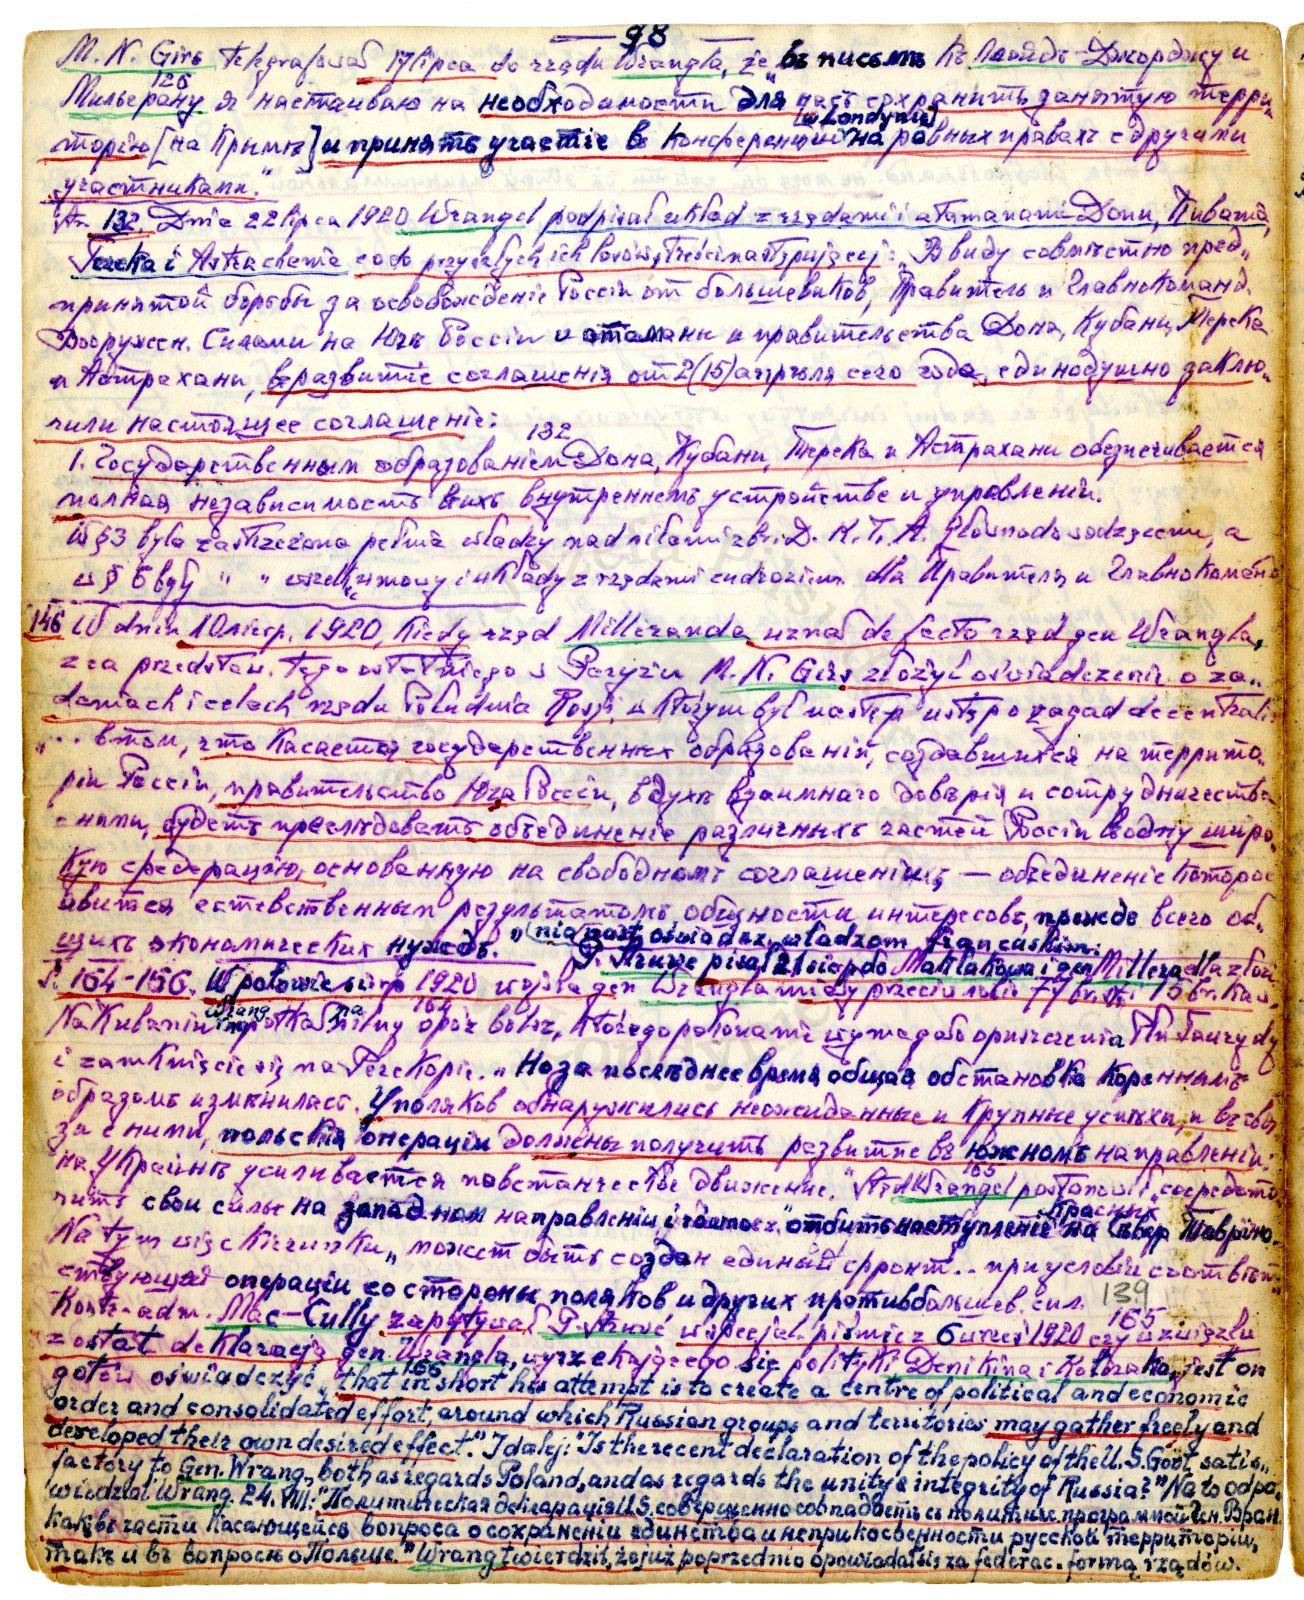 98
M. N. Girs telegrafował 17 lipca do rządu Wrangla, że „въ письмѣ къ Ллойдъ-Джорджу и
126
Мильерану я настаиваю на необходимости для насъ сохранить занятую терри„
[w Londynie]
торію [на Крымѣ] и принять участіе въ Конференціи на равныхъ правахъ с другими
участниками."
132. Dnia 22 lipca 1920 Wrangel podpisał układ z rządami i atamanami Donu, Kubania,
Tereka i Astrachania co do przyszłych ich losów, treści następującej: „В виду совмѣстно пред„
принятой борьбы за освобожденіе Россіи от большевиковъ, Правитель и Главнокоманд.
Вооружен. Силами на Югѣ Россіи и атаманы и правительства Дона, Кубани, Терека
и Астрахани, въ развитіе соглашенія от 2(15) апрѣля сего года, единодушно заклю„
чили настоящее соглашеніе:
132
1. Государственным образованіем Дона, Кубани, Терека и Астрахани обезпечивается
полная независимость въ ихъ внутреннемъ устройстве и управленіи.
W §3 była zastrzeżona pełnia władzy nad siłami zbr. D. K. T. A. Głównodowodzącemu, a
w § 6 był " " umowy i układy z rządami cudzoziem. dla Правителя и Главнокоманд
146 W dniu 10 sierp. 1920, kiedy rząd Milleranda uznał de facto rząd gen Wrangla,
przedstaw. tego ostatniego w Paryżu M. N. Girs złożył oświadczenie o za„
daniach i celach rządu Południa Rosji, w którym był następ ustęp o zasad decentrali
„... в том, что касается государственных образованій, создавшихся на террито„
ріи Россіи, правительство Юга Россіи, в духѣ взаимнаго довѣрія и сотрудничества
с ними, будетъ преслѣдовать объединеніе различныхъ частей Россіи въ одну широ„
кую федерацію, основанную на свободномъ соглашеніи, — объединеніе которое
явится естественным результатомъ общности интересовъ, прежде всего об„
щихъ экономических нуждъ." oświadcz. władzom francuskim.
P. Struve pisał 21 sierp do Makłakowa i gen Millera
S. 154-156. W połowie sierp 1920 wojska gen Wrangla
Wrang na 164
Na Kubaniu napotkał silny opór bolsz, którego pokonanie opuszczenia Płn Taurydy
i zamknięcie się na Perekopie. „Но за послѣднее время общая обстановка кореннымъ
образомъ измѣнилась. У поляков обнаружились неожиданные и крупные успѣхи, и въ свя
зи с ними, польскія операціи должны получить развитіе въ южномъ направленіи;
на Украинѣ усиливается повстанческое движеніе." 165 Wrangel postanowił „сосредото
красных
чить свои силы на западном направленіи" i „отбить наступленіе" на Сѣвер. Таврію.
Na tym więc kierunku „может быть создан единый фронт... при условіи соотвѣт
ствующей операціи со стороны поляков и других противобольшев. сил. 139
165
Kontr-adm. Mac-Cully zapytywał P. Struve w specjal. piśmie z 6 wrześ 1920 czy w związku
z ostat deklaracją gen. Wrangla, wyrzekającego się polityki Denikina i Kołczaka, jest on
166
gotów oświadczyć, „that in short his attempt is to create a centre of political and economic
order and consolidated effort, around which Russian groups and territories may gather freely and
developed their own desired effect." I dalej: „Is the recent declaration of the policy of the U.S. Govt satis„
factory to Gen. Wrang., both as regards Poland, and as regards the unity & integrity of Russia?" Na to odpo„
wiedział Wrang. 24. VIII: „Политическая декларація U.S. совершенно совпадаетъ съ политич. программой Ген. Вран
какъ въ части касающейся вопроса о сохраненіи единства и неприкосвенности русской территоріи,
такъ и въ вопросѣ о Польше." Wrang twierdził, że już poprzednio opowiadał się za federac. formą rządów.